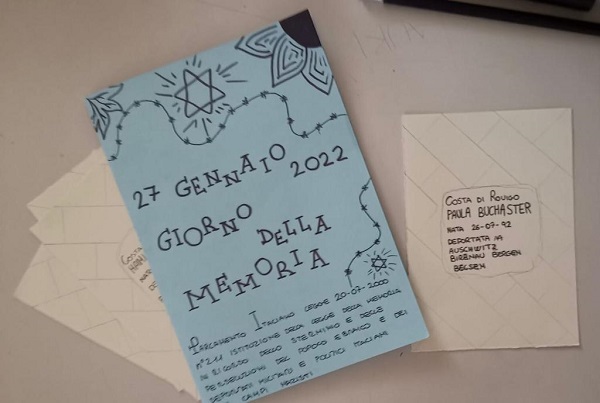 27 GENNAIO 2022
GIORNO
DELLA
MEMORIA
PARLAMENTO ITALIANO LEGGE 20-07-2000
N°211 ISTITUZIONE DELLA LEGGE DELLA MEMORIA
IN RICORDO DELLO STERMINIO E DELLE
PERSECUZIONI DEL POPOLO EBRAICO E DEI
DEPORTATI MILITARI E POLITICI ITALIANI
CAMPI NAZISTI
COSTA DI ROVIGO
PAULA BUCHASTER
NATA 26-07-92
DEPORTATA IN
AUSCHWITZ
BIRBNAU BERGEN
BELSEN